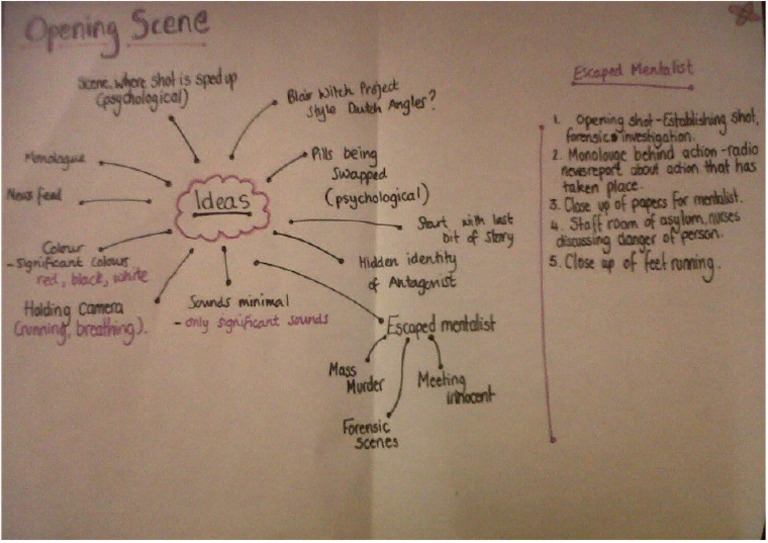 Opening Scene
Scene, where shot is sped up
(psychological)
Blair Witch Project
style Dutch Angles?
Monologue
Pills being
swapped
(psychological)
News feed
Ideas
Start with last
bit of story
Colour
- significant colours
red, black, white
Hidden identity
of Antagonist
Holding Camera
(running, breathing).
Sounds minimal
- only significant sounds
Escaped mentalist
Mass
Murder
Meeting
innocent
Forensic
scenes
Escaped Mentalist
1. Opening shot - Establishing shot,
forensics investigation.
2. Monolouge behind action - radio
newsreport about action that has
taken place.
3. Close up of papers for mentalist.
4. Staff room of asylum, nurses
discussing danger of person.
5. Close up of feet running.